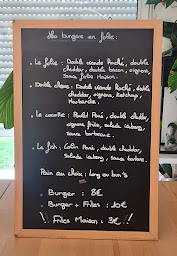 Les burgers en folie :
• Le folie : Double viande Roublié, double
cheddar, double bacon, oignons,
Sauce folie Maison.
• Double cheese : Double viande Roublié, double
cheddar, oignons, ketchup,
Moutarde.
• Le cocotte : Poulet Pané, double cheddar,
oignons frits, salade iceberg,
sauce barbecue.
• Le fish : Colin Pané, double cheddar,
Salade iceberg, sauce tartare.
Pain au choix : long ou bun's
• Burger : 8€
• Burger + Frites : 10€
!! Frites Maison : 3€ !!